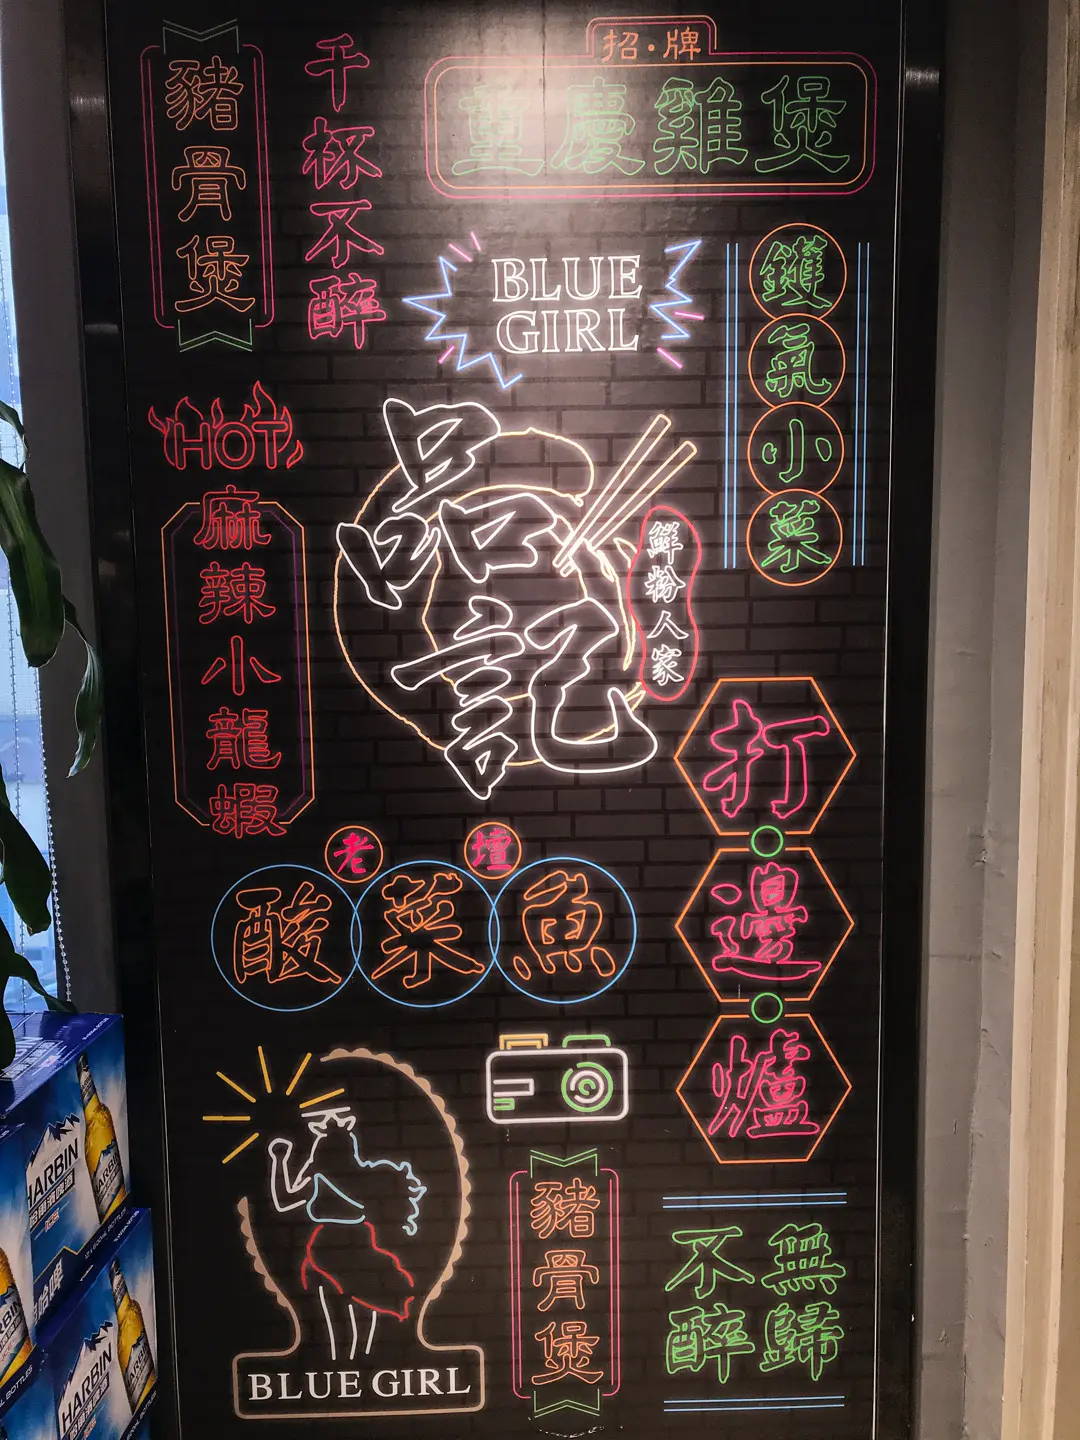 豬骨煲
千杯不醉
招·牌
重慶雞煲
BLUE
GIRL
鑊氣小菜
HOT
麻辣小龍蝦
品記
鮮粉人家
打邊爐
老壇
酸菜魚
BLUE GIRL
豬骨煲
不無
醉歸
HARBIN
HARBIN